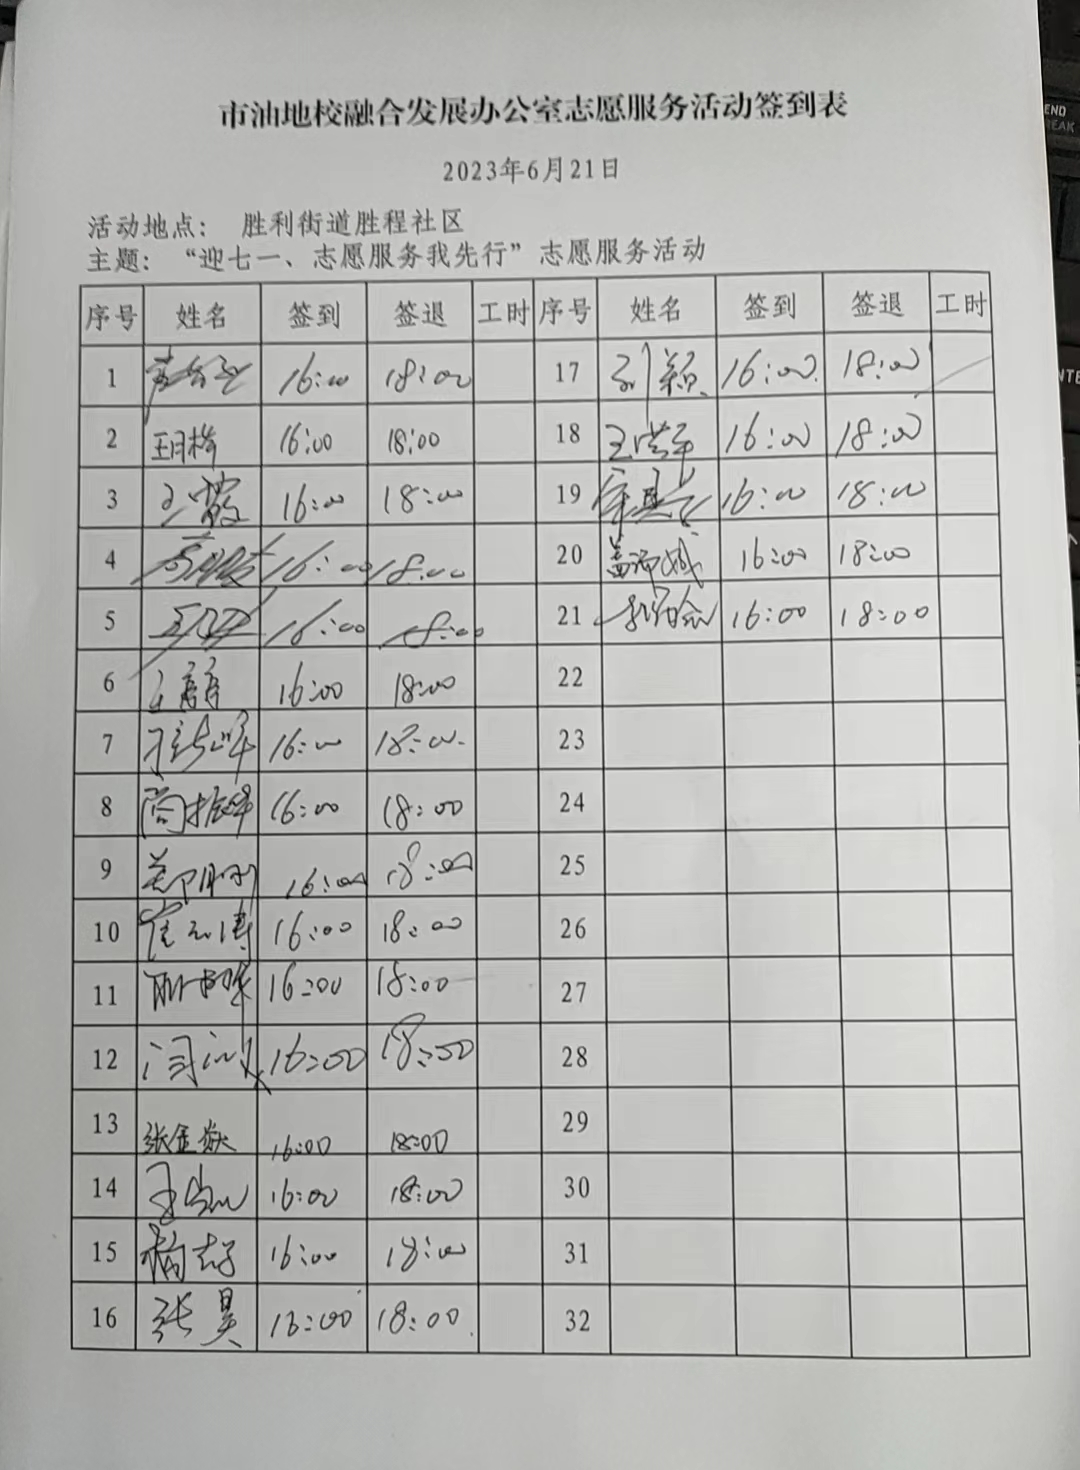 市油地校融合发展办公室志愿服务活动签到表
2023年6月21日
活动地点： 胜利街道胜程社区
主题： “迎七一、志愿服务我先行”志愿服务活动
序号 姓名 签到 签退 工时 序号 姓名 签到 签退 工时
1 16:00 18:00 17 刘颖 16:00 18:00
2 16:00 18:00 18 16:00 18:00
3 王 16:00 18:00 19 16:00 18:00
4 16:00 18:00 20 16:00 18:00
5 16:00 18:00 21 16:00 18:00
6 16:00 18:00 22
7 16:00 18:00 23
8 16:00 18:00 24
9 16:00 18:00 25
10 16:00 18:00 26
11 16:00 18:00 27
12 16:00 18:00 28
13 张金 16:00 18:00 29
14 16:00 18:00 30
15 16:00 18:00 31
16 张昊 16:00 18:00 32
END